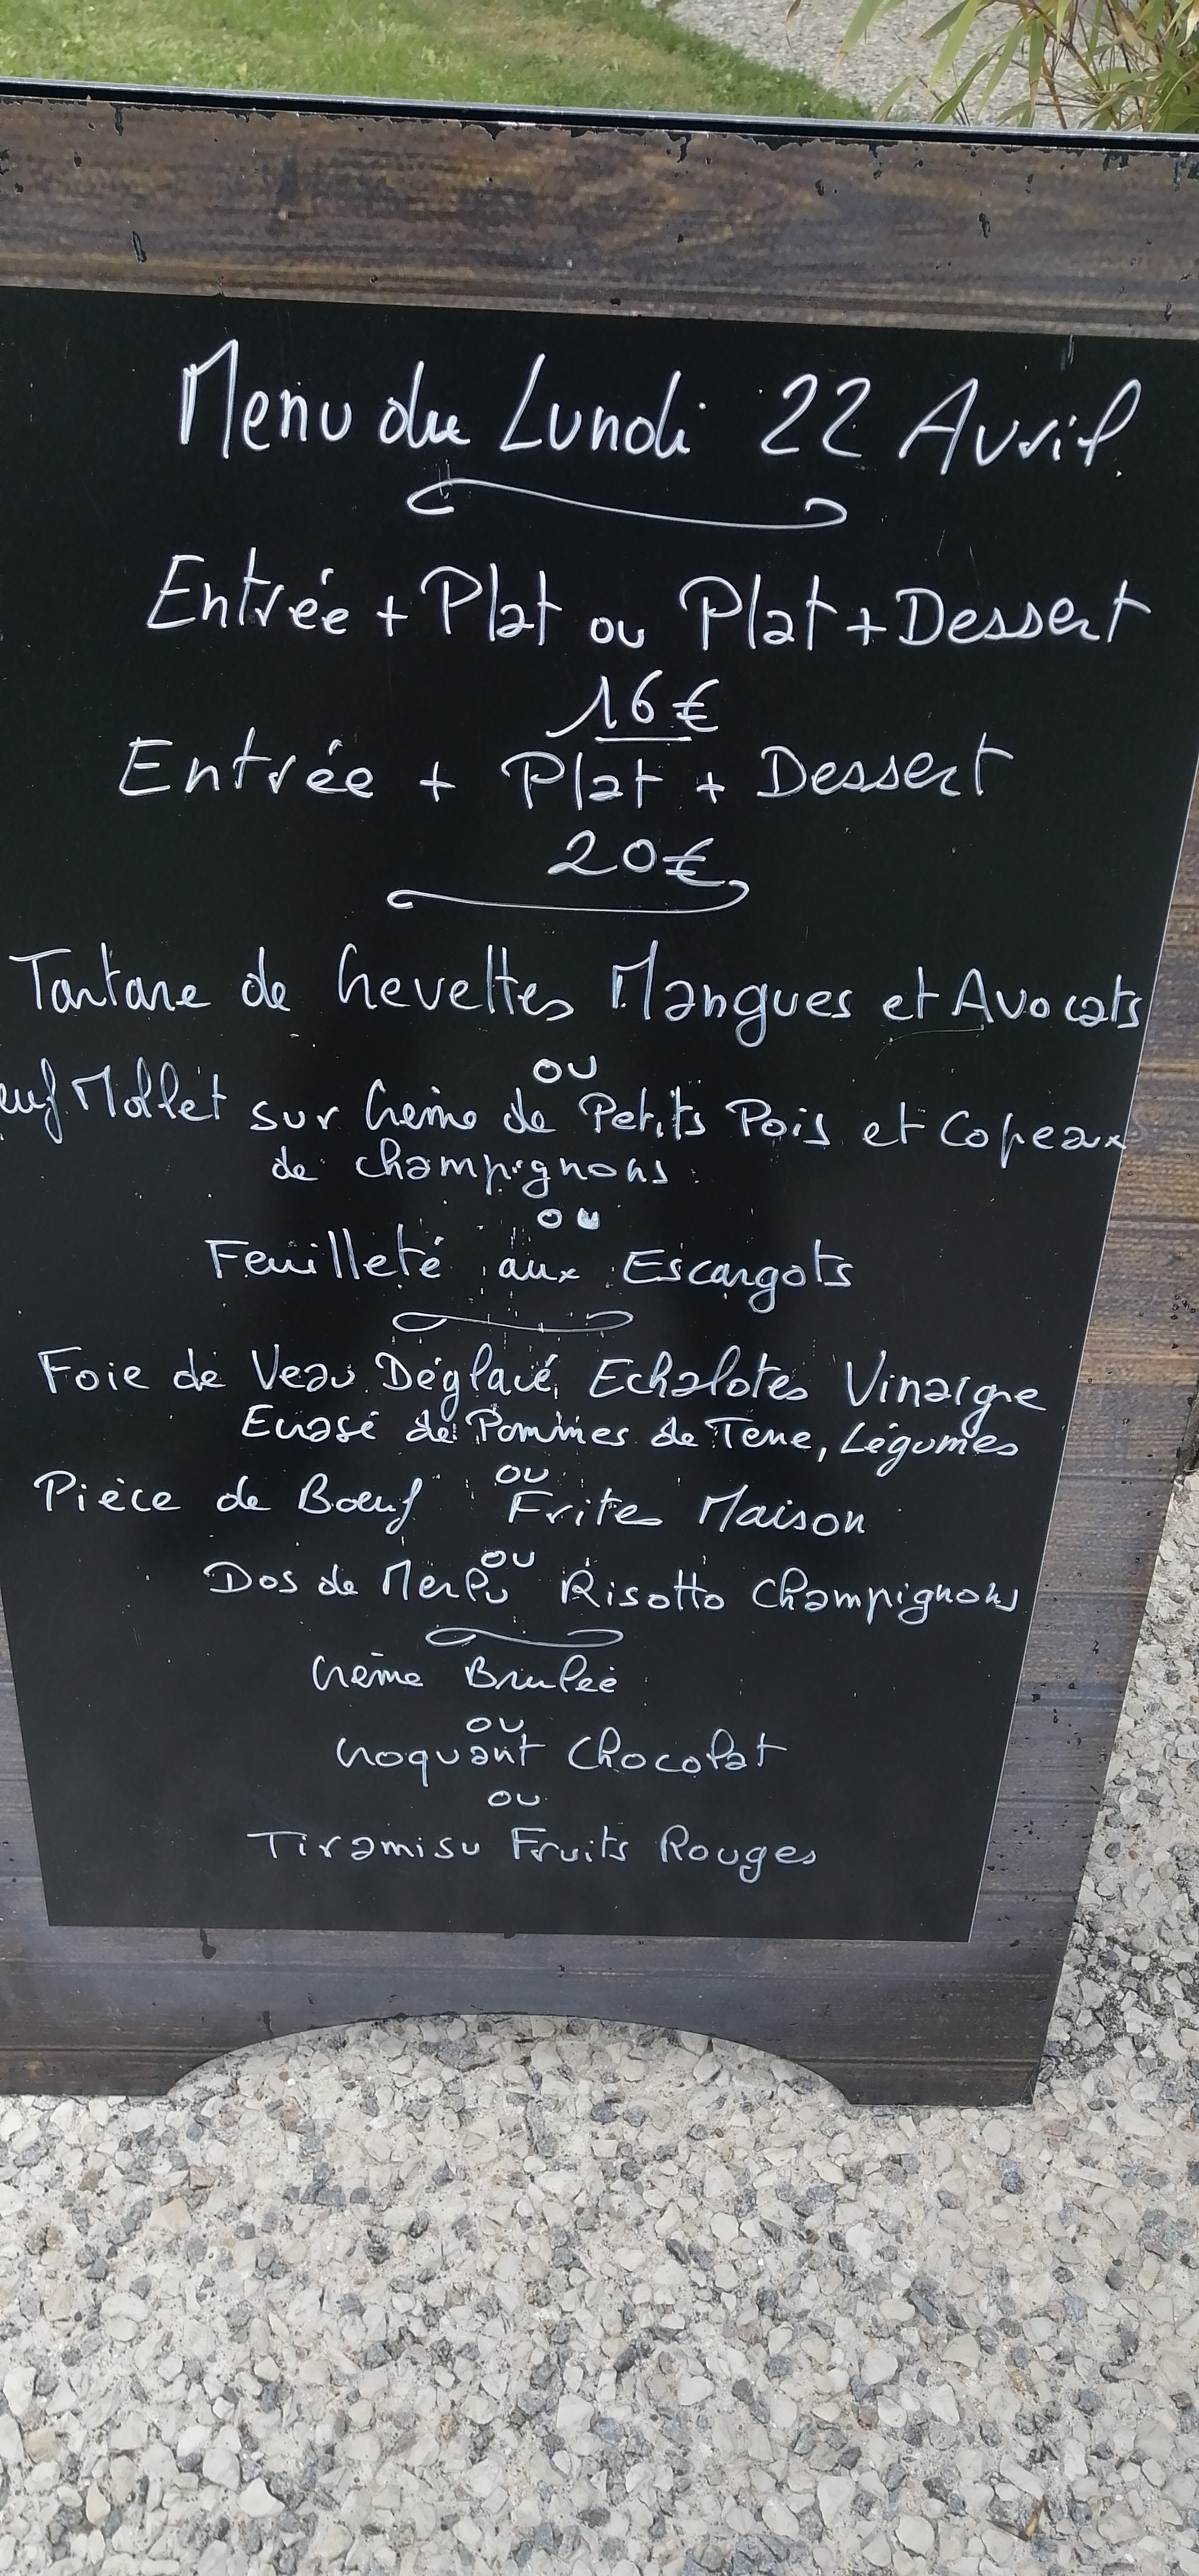 Menu du Lundi 22 Avril.
Entrée + Plat ou Plat + Dessert
16€
Entrée + Plat + Dessert
20€
Tartare de Crevettes Mangues et Avocats
ou
euf Mollet sur Crème de Petits Pois et Copeaux
de champignons
ou
Feuilleté aux Escargots
Foie de Veau Déglacé Echalotes Vinaigre
Ecrasé de Pommes de Terre, Légumes
ou
Pièce de Boeuf Frites Maison
ou
Dos de Merlu Risotto Champignons
Crème Brulée
ou
Croquant Chocolat
ou
Tiramisu Fruits Rouges